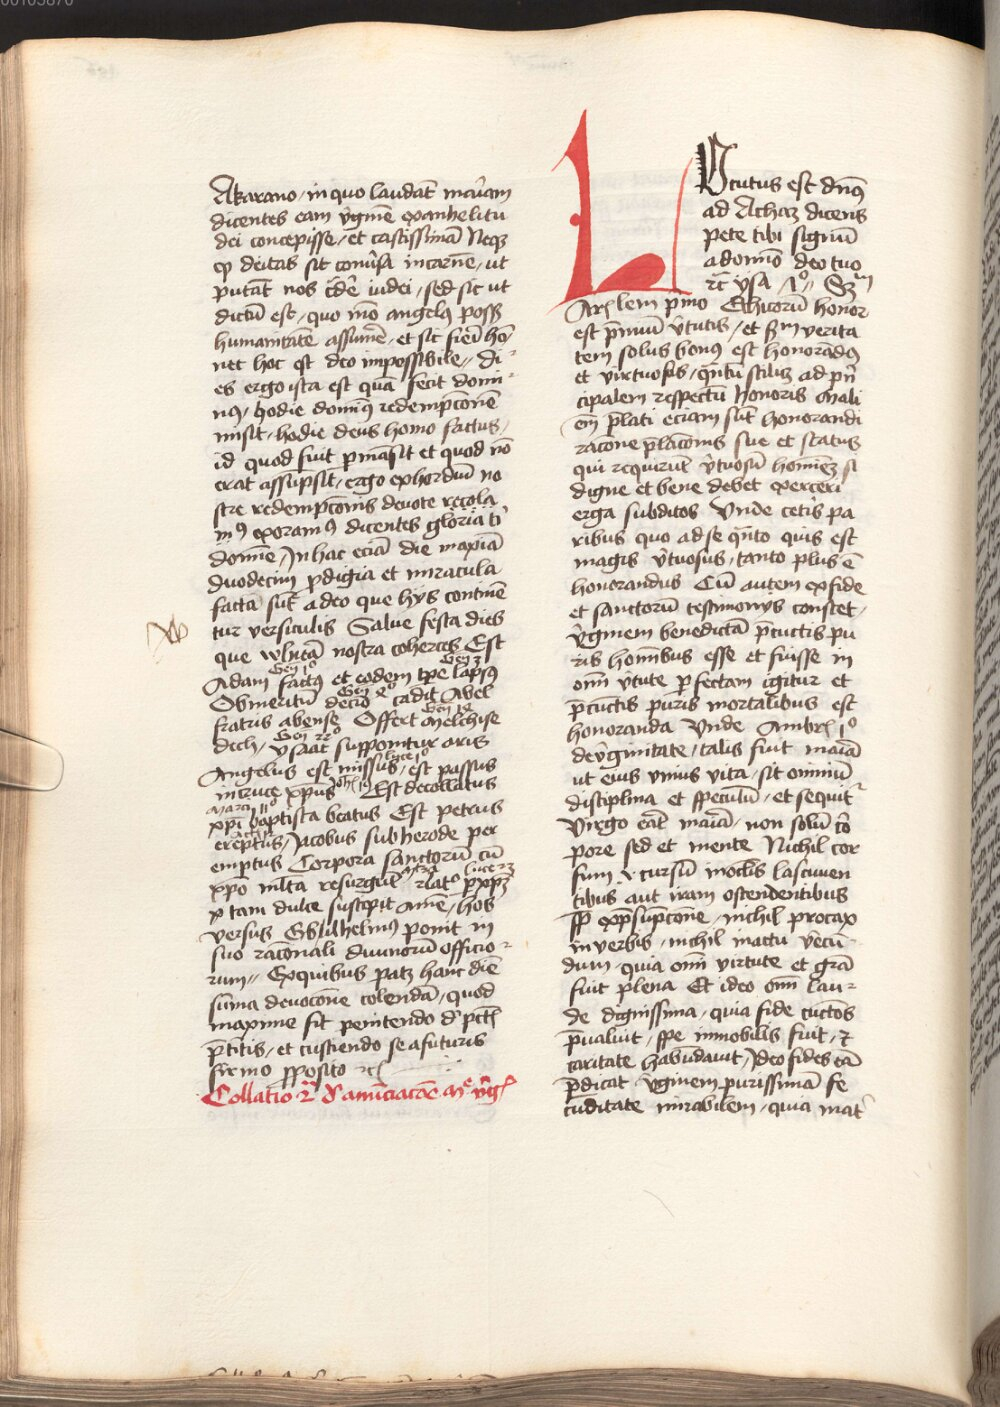 Akarano in quo laudat mariam
dicentes eam virginem ex anhelitu
dei concepisse et castissimam Neque
quod deitas sit conversa in carnem ut
putant nos credere iudei sed sic ut
dictum est quo modo angelus posset
humanitatem assumere et sic fieri homo
nec hoc est deo impossibile Di
es ergo ista est quam fecit domi
nus hodie dominus redempcionem
misit hodie deus homo factus
id quod fuit permansit et quod non
erat assumpsit ergo exhordium no
stre redempcionis devote recola
mus exoramus dicentes gloria tibi
domine In hac eciam die maxima
duodecim prodigia et miracula
facta sunt a deo que hys contine
tur versiculis Salve festa dies
que vulnera nostra coherces Est
Gen 1o Gen 3
Adam factus et eodem tempore lapsus
Gen 4o
Ob meritum decimo cadit Abel
Gen 14
fratris ab ense Offert Melchise
Gen 22o
dech ysaac supponitur aris
luce 1o
Angelus est missus est passus
in cruce xpus Est decollatus
Marci
xpi baptista beatus Est petrus
ereptus Jacobus sub herode per
emptus Corpora sanctorum cum
xpo multa resurgunt latro
tam dulce suscepit Amen hos
versus Gwilhelmus ponit in
suo racionali divinorum officio
rum Ex quibus patet hanc diem
summa devocione colendam quod
maxime fit penitendo de peccatis
preteritis et custiendo se a futuris
firmo proposito etc
Collatio 2a de annunciacione marie virginis
Locutus est dominus
ad Achaz dicens
pete tibi signum
a domino deo tuo
etc ysa 7o Secundum
Arestotelem primo Ethicorum honor
est premium virtutis et secundum verita
tem solus bonus est honorandus
et virtuosus quantum scilicet ad prin
cipalem respectum honoris Mali
enim prelati eciam sunt honorandi
racione prelacionis sue et status
qui requirunt virtuosum hominem si
digne et bene debet exerceri
erga subditos Unde ceteris pa
ribus quo ad se quanto quis est
magis virtuosus tanto plus est
honorandus Cum autem ex fide
et sanctorum testimonys constet
virginem benedictam pre cunctis pu
ris hominibus esse et fuisse in
omni virtute perfectam igitur et
pre cunctis puris mortalibus est
honoranda Unde Ambrosius 1o
de virginitate talis fuit maria
ut eius unius vita sit omnium
disciplina et speculum et sequitur
Virgo erat maria non solum cor
pore sed et mente Nichil cor
sum vel cursum in oculis lascivien
tibus aut iram ostendentibus
seu ex presumpcione nichil procax
in verbis nichil in actu verecun
dum quia omni virtute et gracia
fuit plena Et ideo omni lau
de dignissima quia fide cunctos
prevaluit spe immobilis fuit et
caritate habundavit Ideo fides eam
predicat virginem purissimam fe
cunditate mirabilem quia mater